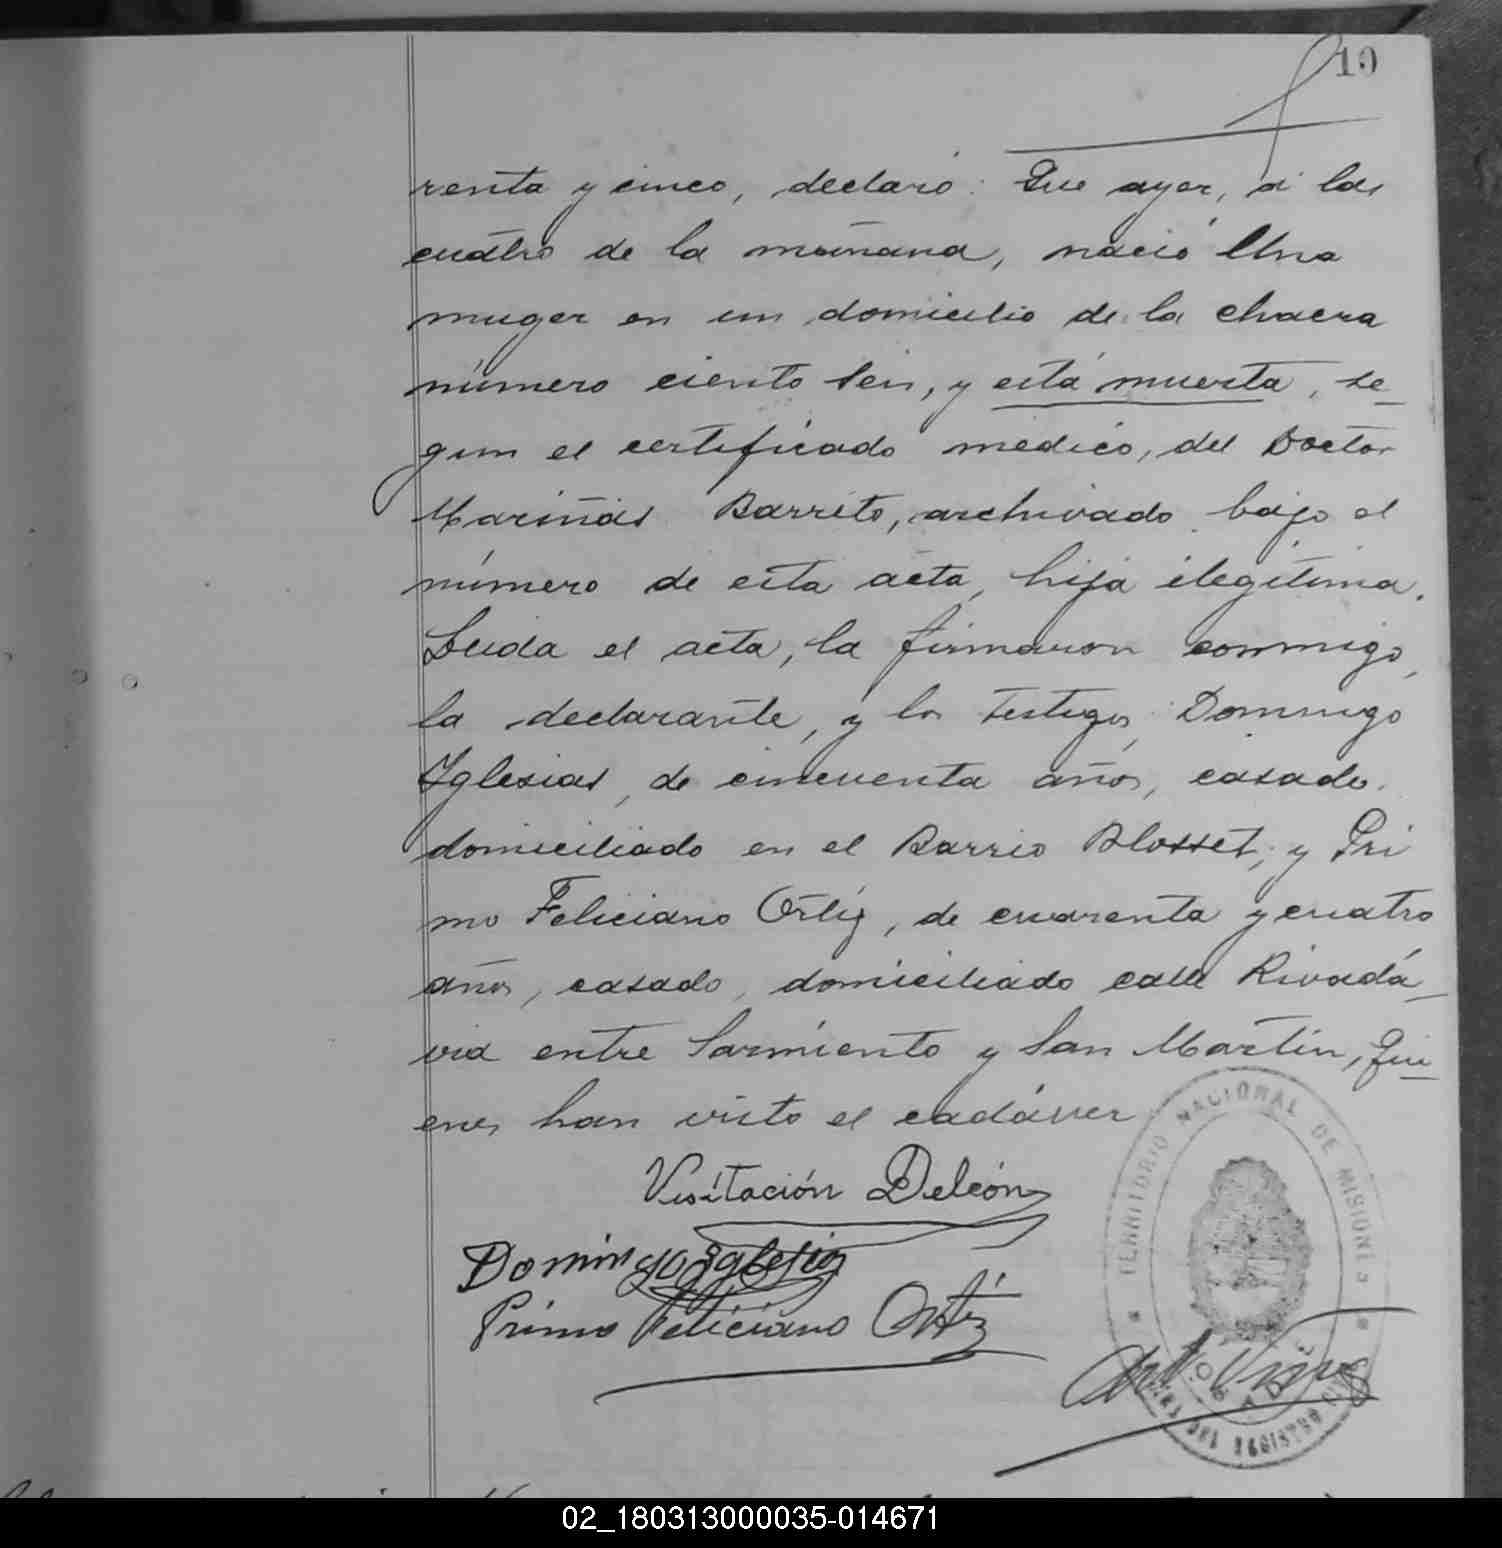 10
renta y cinco, declaró: Que ayer, á las
cuátro de la mañana, nació Una
muger en un domicilio de la chacra
número ciento seis, y está muerta, se-
gun el certificado médico, del Doctor
Mariñás Barrito, archivado bajo el
número de esta acta, hija ilegítima.
Leida el acta, la firmaron conmigo,
la declarante, y los testigos, Domingo
Iglesias, de cincuenta años, casado,
domiciliado en el Barrio Blosset; y Pri
mo Feliciano Ortíz, de cuarenta y cuatro
años, casado, domiciliado calle Rivadá-
via entre Sarmiento y San Martín, qui-
enes han visto el cadáver
Visitación Deleón
Domingo Iglesias
Primo Feliciano Ortiz
TERRITORIO NACIONAL DE MISIONES
DEL REGISTRO CIVIL
02_180313000035-014671